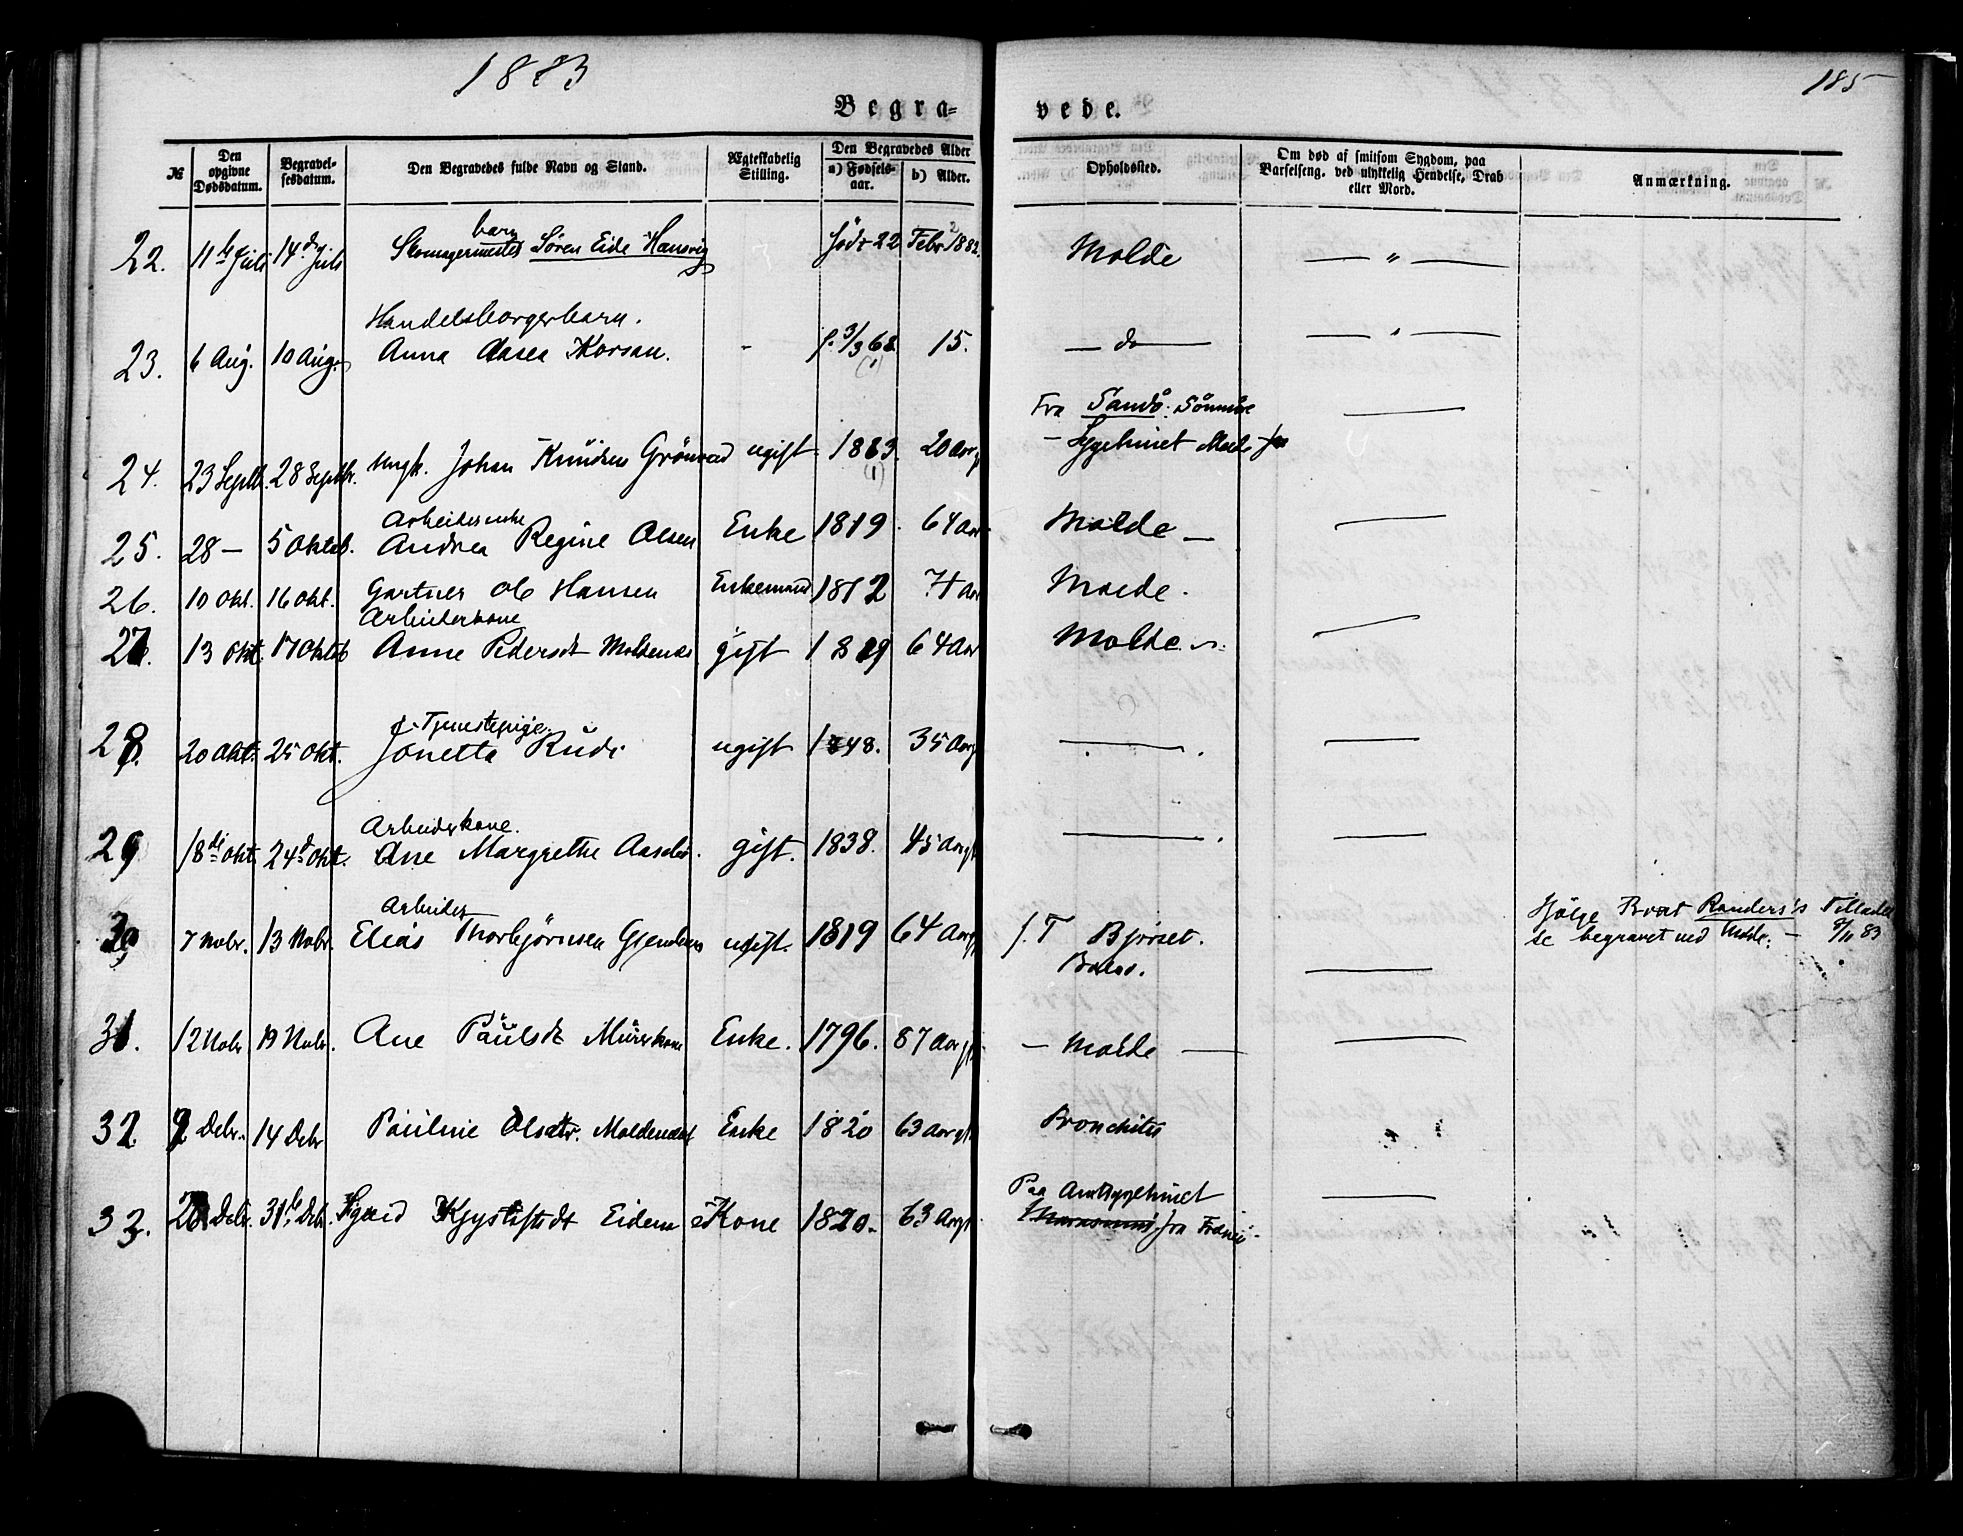 1883
185
Begra=
vede.
№
Den opgivne Dødsdatum.
Begravelsesdatum.
Den Begravedes fulde Navn og Stand.
Ægteskabelig Stilling.
Den Begravedes Alder
a) Fødselsaar.
b) Alder.
Opholdssted.
Om død af smitsom Sygdom, paa Barselseng, ved ulykkelig Hendelse, Drab eller Mord.
Anmærkning.
barn
22. 11te Juli 14de Juli Skomagermester Søren Eide Hansvig født 22 Febr 1882. Molde — " —
Handelsborgerbarn.
23. 6 Aug. 10 Aug. Anna Aasea Korsan. - f. 3/3 68. 15. — do — — " —
Fra Sandö. Sönmöre —
24. 23 Septb. 28 Septbr. Ungk. Johan Knudsen Grönvad ugift 1863. 20 Aarg — Sygehuset Molde
(1)
Arbeiderenke
25. 28 — 5 Oktob. Andrea Regine Olsen Enke 1819. 64 Aar Molde — —
26. 10 Okt. 16 Okt. Gartner Ole Hansen Enkemand 1812 71 Aar Molde.
Arbeiderkone
27. 13 Okt. 17 Oktob Anne Pedersdt Moldenæs gift 1819 64 Aar Molde —
Tjenestepige
28. 20 Okt. 25 Okt. Jonetta Rüd ugift 1848. 35 Aarg — —
Arbeiderkone.
29 18de Okt. 24d Okt. Ane Margrethe Aasebö. gift. 1838. 45 Aarg — —
Arbeider
30 7 Nobr. 13 Nobr. Elias Thorbjørnsen Gjendem ugift. 1819 64 Aarg f. T Bjørset. Bolsø. —
Ifølge Provst Randers's Tilladel
se begravet ved Molde. — 9/11 83
31. 12 Nobr 19 Nobr. Ane Paülsdt Mürerkone Enke. 1796. 87 Aarg — Molde — —
32 9 Debr. 14 Debr Pauline Olsdtr. Moldenæs Enke 1820 63 Aarg Bronchitis "
Paa Amtssygehuset —
33. Debr. 31te Debr. Eidem Kone 1820. 63 Aarg fra Frænö.